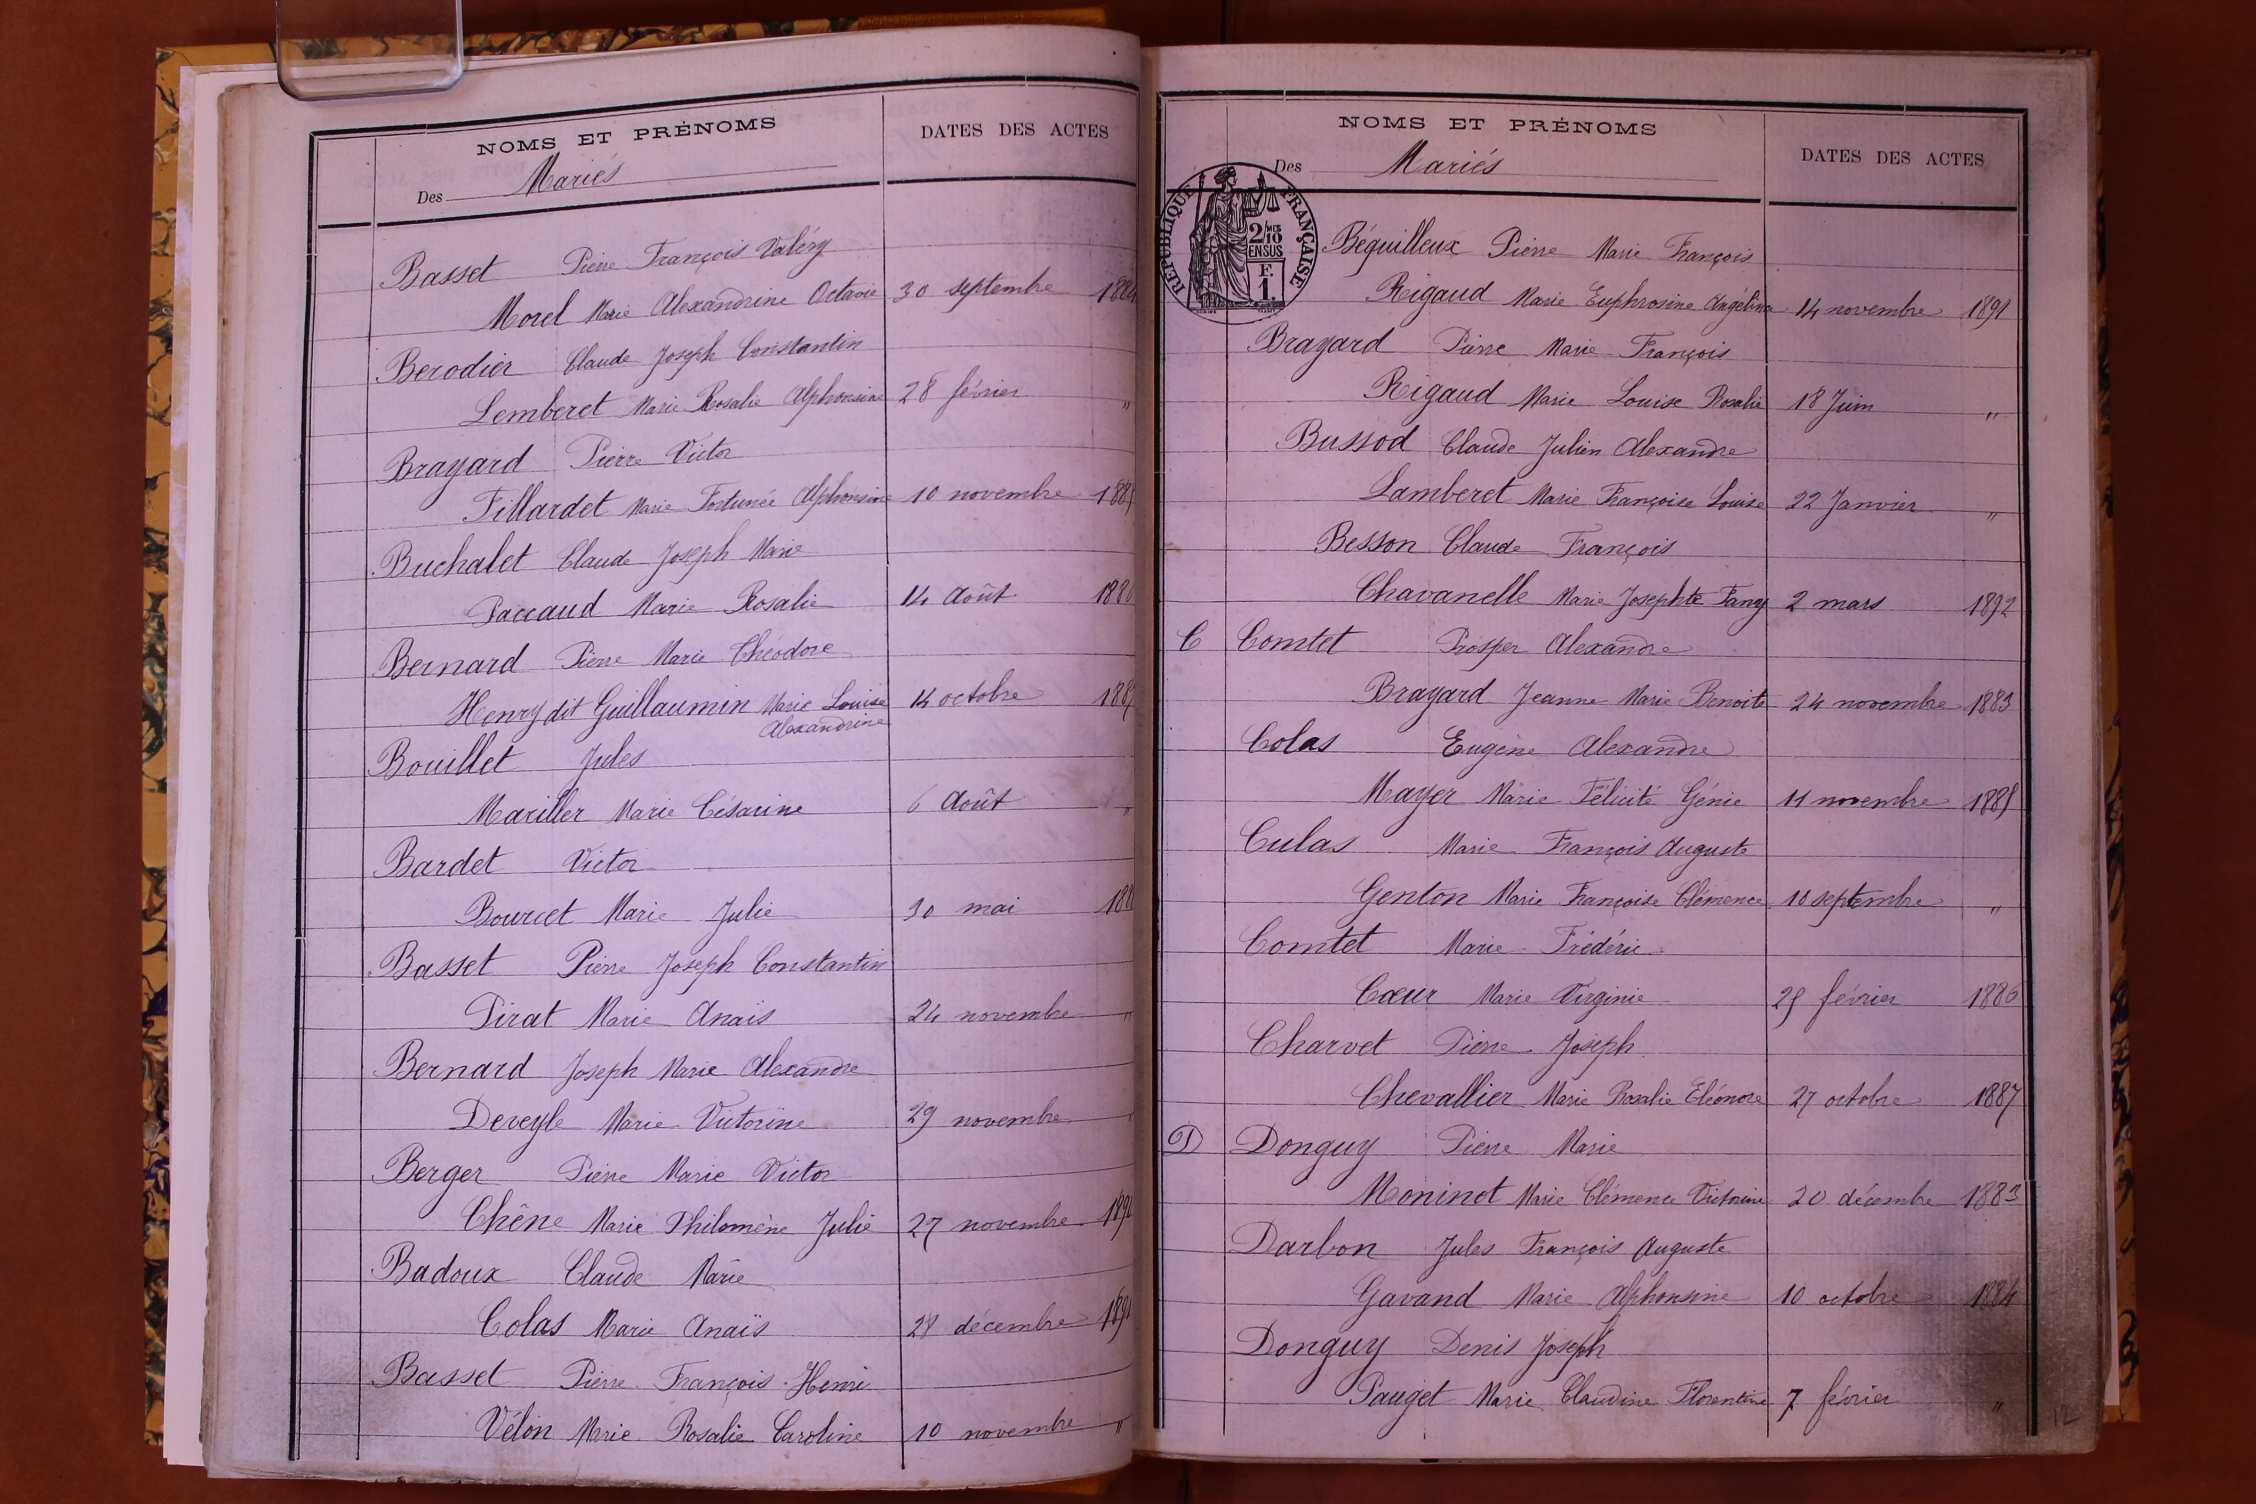 NOMS ET PRÉNOMS
DATES DES ACTES
Des Mariés
Basset Pierre François Valéry
Morel Marie Alexandrine Octavie 30 septembre 1884
Berodier Claude Joseph Constantin
Lemberet Marie Rosalie Alphonsine 28 février "
Brayard Pierre Victor
Fillardet Marie Fortunée Alphonsine 10 novembre
Buchalet Claude Joseph Marie
Paccaud Marie Rosalie 14 Août
Bernard Pierre Marie Théodore
Henry dit Guillaumin Marie Louise 14 octobre
Alexandrine
Bouillet Jules
Mariller Marie Césarine 6 Août "
Bardet Victor
Bourcet Marie Julie 30 mai
Basset Pierre Joseph Constantin
Pirat Marie Anaïs 24 novembre "
Bernard Joseph Marie Alexandre
Deveyle Marie Victorine 29 novembre
Berger Pierre Marie Victor
Chêne Marie Philomène Julie 27 novembre
Badoux Claude Marie
Colas Marie Anaïs 28 décembre
Basset Pierre François Henri
Vélon Marie Rosalie Caroline 10 novembre "
NOMS ET PRÉNOMS
DATES DES ACTES
Des Mariés
RÉPUBLIQUE FRANÇAISE
2/10
EN SUS
F.
1.
Béquilleux Pierre Marie François
Rigaud Marie Euphrosine Angélina 14 novembre 1891
Brayard Pierre Marie François
Rigaud Marie Louise Rosalie 18 Juin "
Bussod Claude Julien Alexandre
Lamberet Marie Françoise Louise 22 Janvier "
Besson Claude François
Chavanelle Marie Josephte Fany 2 mars 1892
C Comtet Prosper Alexandre
Brayard Jeanne Marie Benoite 24 novembre 1883
Colas Eugène Alexandre
Mayer Marie Félicité Génie 11 novembre 1885
Culas Marie François Auguste
Genton Marie Françoise Clémence 10 septembre "
Comtet Marie Frédéric
Cœur Marie Virginie 25 février 1886
Charvet Pierre Joseph
Chevallier Marie Rosalie Eléonore 27 octobre 1887
D Donguy Pierre Marie
Moninot Marie Clémence Victorine 20 décembre 1883
Darbon Jules François Auguste
Gavand Marie Alphonsine 10 octobre 1884
Donguy Denis Joseph
Pauget Marie Claudine Florentine 7 février "
12